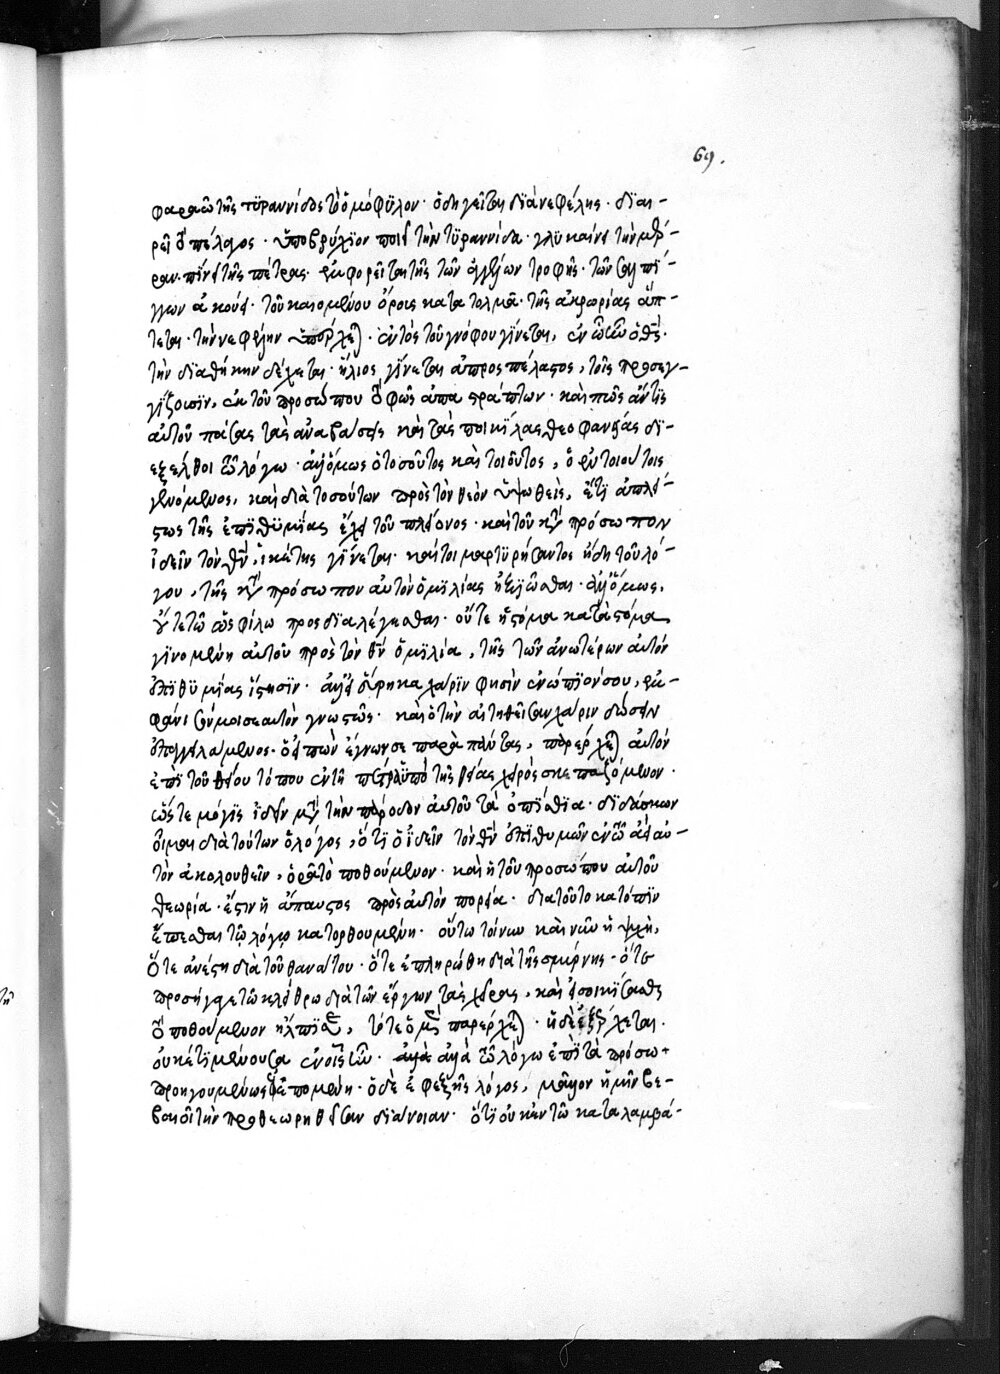 69.
φαραὼ τῆς τϋραννίδος τὸ ὁμόφϋλον· ὁδηγεῖται διὰ νεφέλης· δϊαι-
ρεῖ τὸ πέλαγος· ὑποβρύχϊον ποιεῖ τὴν τϋραννίδα· γλυκαίνει τὴν μέρ-
ραν· πίνει τῆς πέτρας· ἐμφορεῖται τῆς τῶν ἀγγέλων τροφῆς· τῶν σαλπί-
γγων ἀκούει· τοῦ καιομένου ὄρους κατατολμᾶ· τῆς ἀκρωρίας ἅπ-
τεται· τὴν νεφέλην ὑπέρχεται· ἐντὸς τοῦ γνόφου γίνεται, ἐν ᾧ ἦν ὁ θς·
τὴν διαθήκην δέχεται· ἥλιος γίνεται ἀπροσπέλαστος, τοῖς προσεγ-
γίζουσιν, ἐκ τοῦ προσώπου τὸ φῶς ἀπαστράπτων· καὶ πῶς ἄν τις
αὐτοῦ πάσας τὰς ἀναβάσεις καὶ τὰς ποικίλας θεοφανείας δι-
εξέλθοι τῷ λόγῳ· ἀλλ' ὅμως ὁ τοσοῦτος καὶ τοιοῦτος, ὁ ἐν τοιούτοις
γενόμενος, καὶ διὰ τοσούτων πρὸς τὸν θεὸν ὑψωθεὶς, ἔτϊ ἀπλή-
στως τῆς ἐπιθϋμίας ἔχει τοῦ πλέονος· καὶ τοῦ κατὰ πρόσωπον
ἰδεῖν τὸν θν, ἱκέτης γίνεται· καίτοι μαρτϋρήσαντος ἤδη τοῦ λό-
γου, τῆς κατὰ πρόσωπον αὐτὸν ὁμιλίας ἠξιῶσθαι· ἀλλ' ὅμως,
οὔτε τὸ ὡς φίλῳ προσδϊαλέγεσθαι· οὔτε ἡ στόμα κατὰ στόμα
γϊνομένη αὐτοῦ πρὸς τὸν θν ὁμϊλία, τῆς τῶν ἀνωτέρων αὐτὸν
ἐπϊθϋμίας ἵστησϊν· ἀλλ' εἰ εὕρηκα χάρϊν φησὶν ἐνώπϊόν σου, ἐμ-
φάνισόν μοι σεαυτὸν γνωστῶς· καὶ ὁ τὴν αἰτηθεῖσαν χάριν δώσειν
ἐπαγγειλάμενος· ὁ εἰπὼν ἔγνων σε παρὰ πάντας, παρέρχεται αὐτὸν
ἐπὶ τοῦ θείου τόπου ἐν τῇ πέτρᾳ ὑπὸ τῆς θείας χειρὸς σκεπαζόμενον·
ὥστε μόγϊς ἰδεῖν μετὰ τὴν πάροδον αὐτοῦ τὰ ὀπίσθϊα· διδάσκων
οἶμαι διὰ τούτων ὁ λόγος, ὅτϊ ὁ ἰδεῖν τὸν θν ἐπϊθυμῶν ἐν τῷ ἀεὶ αὐ-
τὸν ἀκολουθεῖν, ὁρᾷ τὸ ποθούμενον· καὶ ἡ τοῦ προσώπου αὐτοῦ
θεωρία· ἐστιν ἡ ἄπαυστος πρὸς αὐτὸν πορεία· διὰ τοῦτο κατόπϊν
ἕπεσθαι τῷ λόγῳ κατορθουμένη· οὕτω τοίνυν καὶ νῦν ἡ ψχὴ,
ὅτε ἀνέστη διὰ τοῦ θανάτου· ὅτε ἐπληρώθη διὰ τῆς σμύρνης· ὅτε
προσήγαγε τῷ κλείθρῳ διὰ τῶν ἔργων τὰς χεῖρας, καὶ εἰσοικίσασθαι
τὸ ποθούμενον ἤλπϊσε, τότε ὁ μὲν παρέρχεται· ἡ δὲ ἐξέρχεται·
οὐκέτϊ μένουσα ἐν οἷς ἦν· ἀλλὰ τῷ λόγῳ ἐπὶ τὰ πρόσω
προηγουμένως ἑπομένη· ὁ δὲ ἐφεξῆς λόγος, μᾶλλον ἡμῖν βε-
βαιοῖ τὴν προθεωρηθεῖσαν διάνοιαν· ὅτϊ οὐκ ἐν τῷ καταλαμβά-